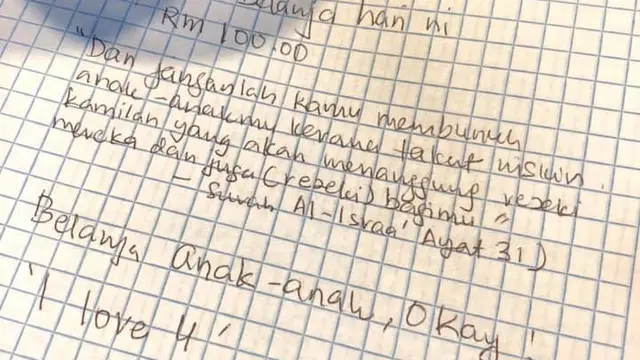 Belanja hari ni
RM 100.00
"Dan janganlah kamu membunuh
anak-anakmu kerana takut miskin.
Kamilah yang akan menanggung rezeki
mereka dan juga (rezeki) bagimu"
- Surah Al-Israa' Ayat 31)
Belanja anak-anak, Okay!
'I love U'